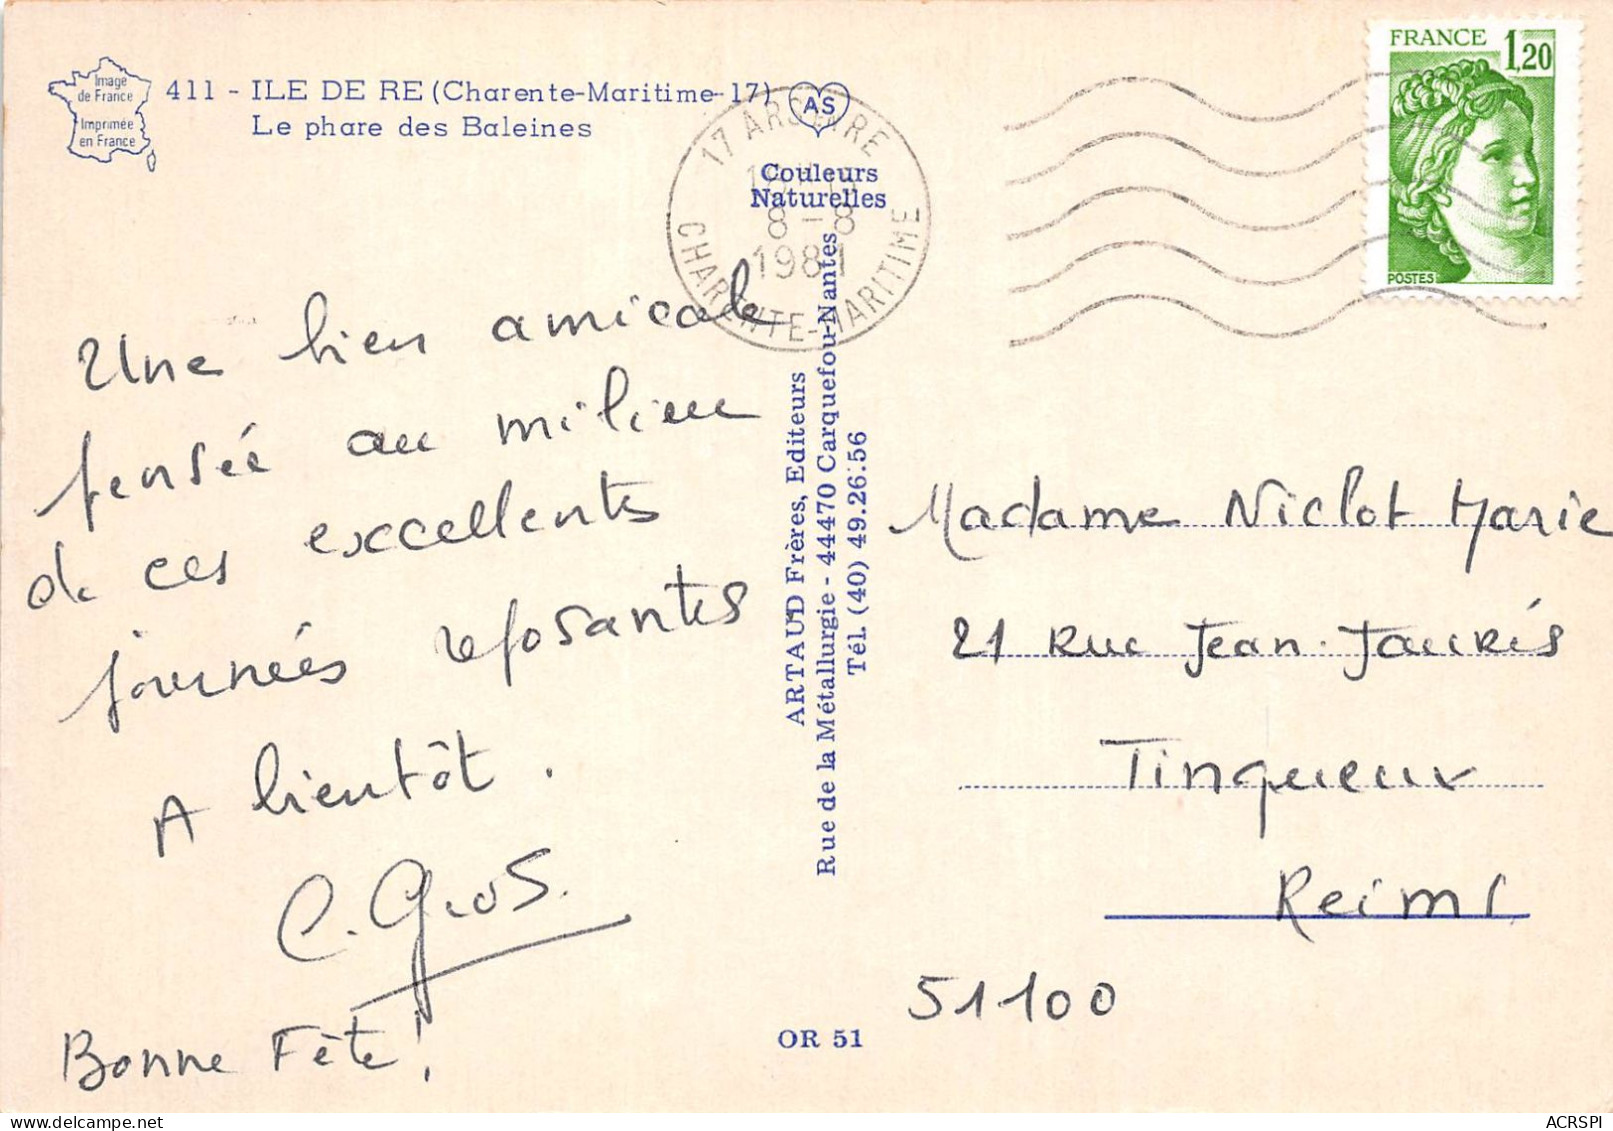 Image
de France
Imprimée
en France
411 - ILE DE RE (Charente-Maritime-17)
Le phare des Baleines
AS
Couleurs
Naturelles
17 ARS EN RE
8-8
1981
CHARENTE-MARITIME
FRANCE 1,20
POSTES
Une bien amicale
pensée au milieu
de ces excellentes
journées reposantes
A bientôt.
C. Gros.
Bonne Fête!
ARTAUD Frères, Editeurs
Rue de la Métallurgie - 44470 Carquefou-Nantes
Tél. (40) 49.26.56
OR 51
Madame Niclot Marie
21 Rue Jean-Jaurés
Tinqueux
Reims
51100
ACRSPI